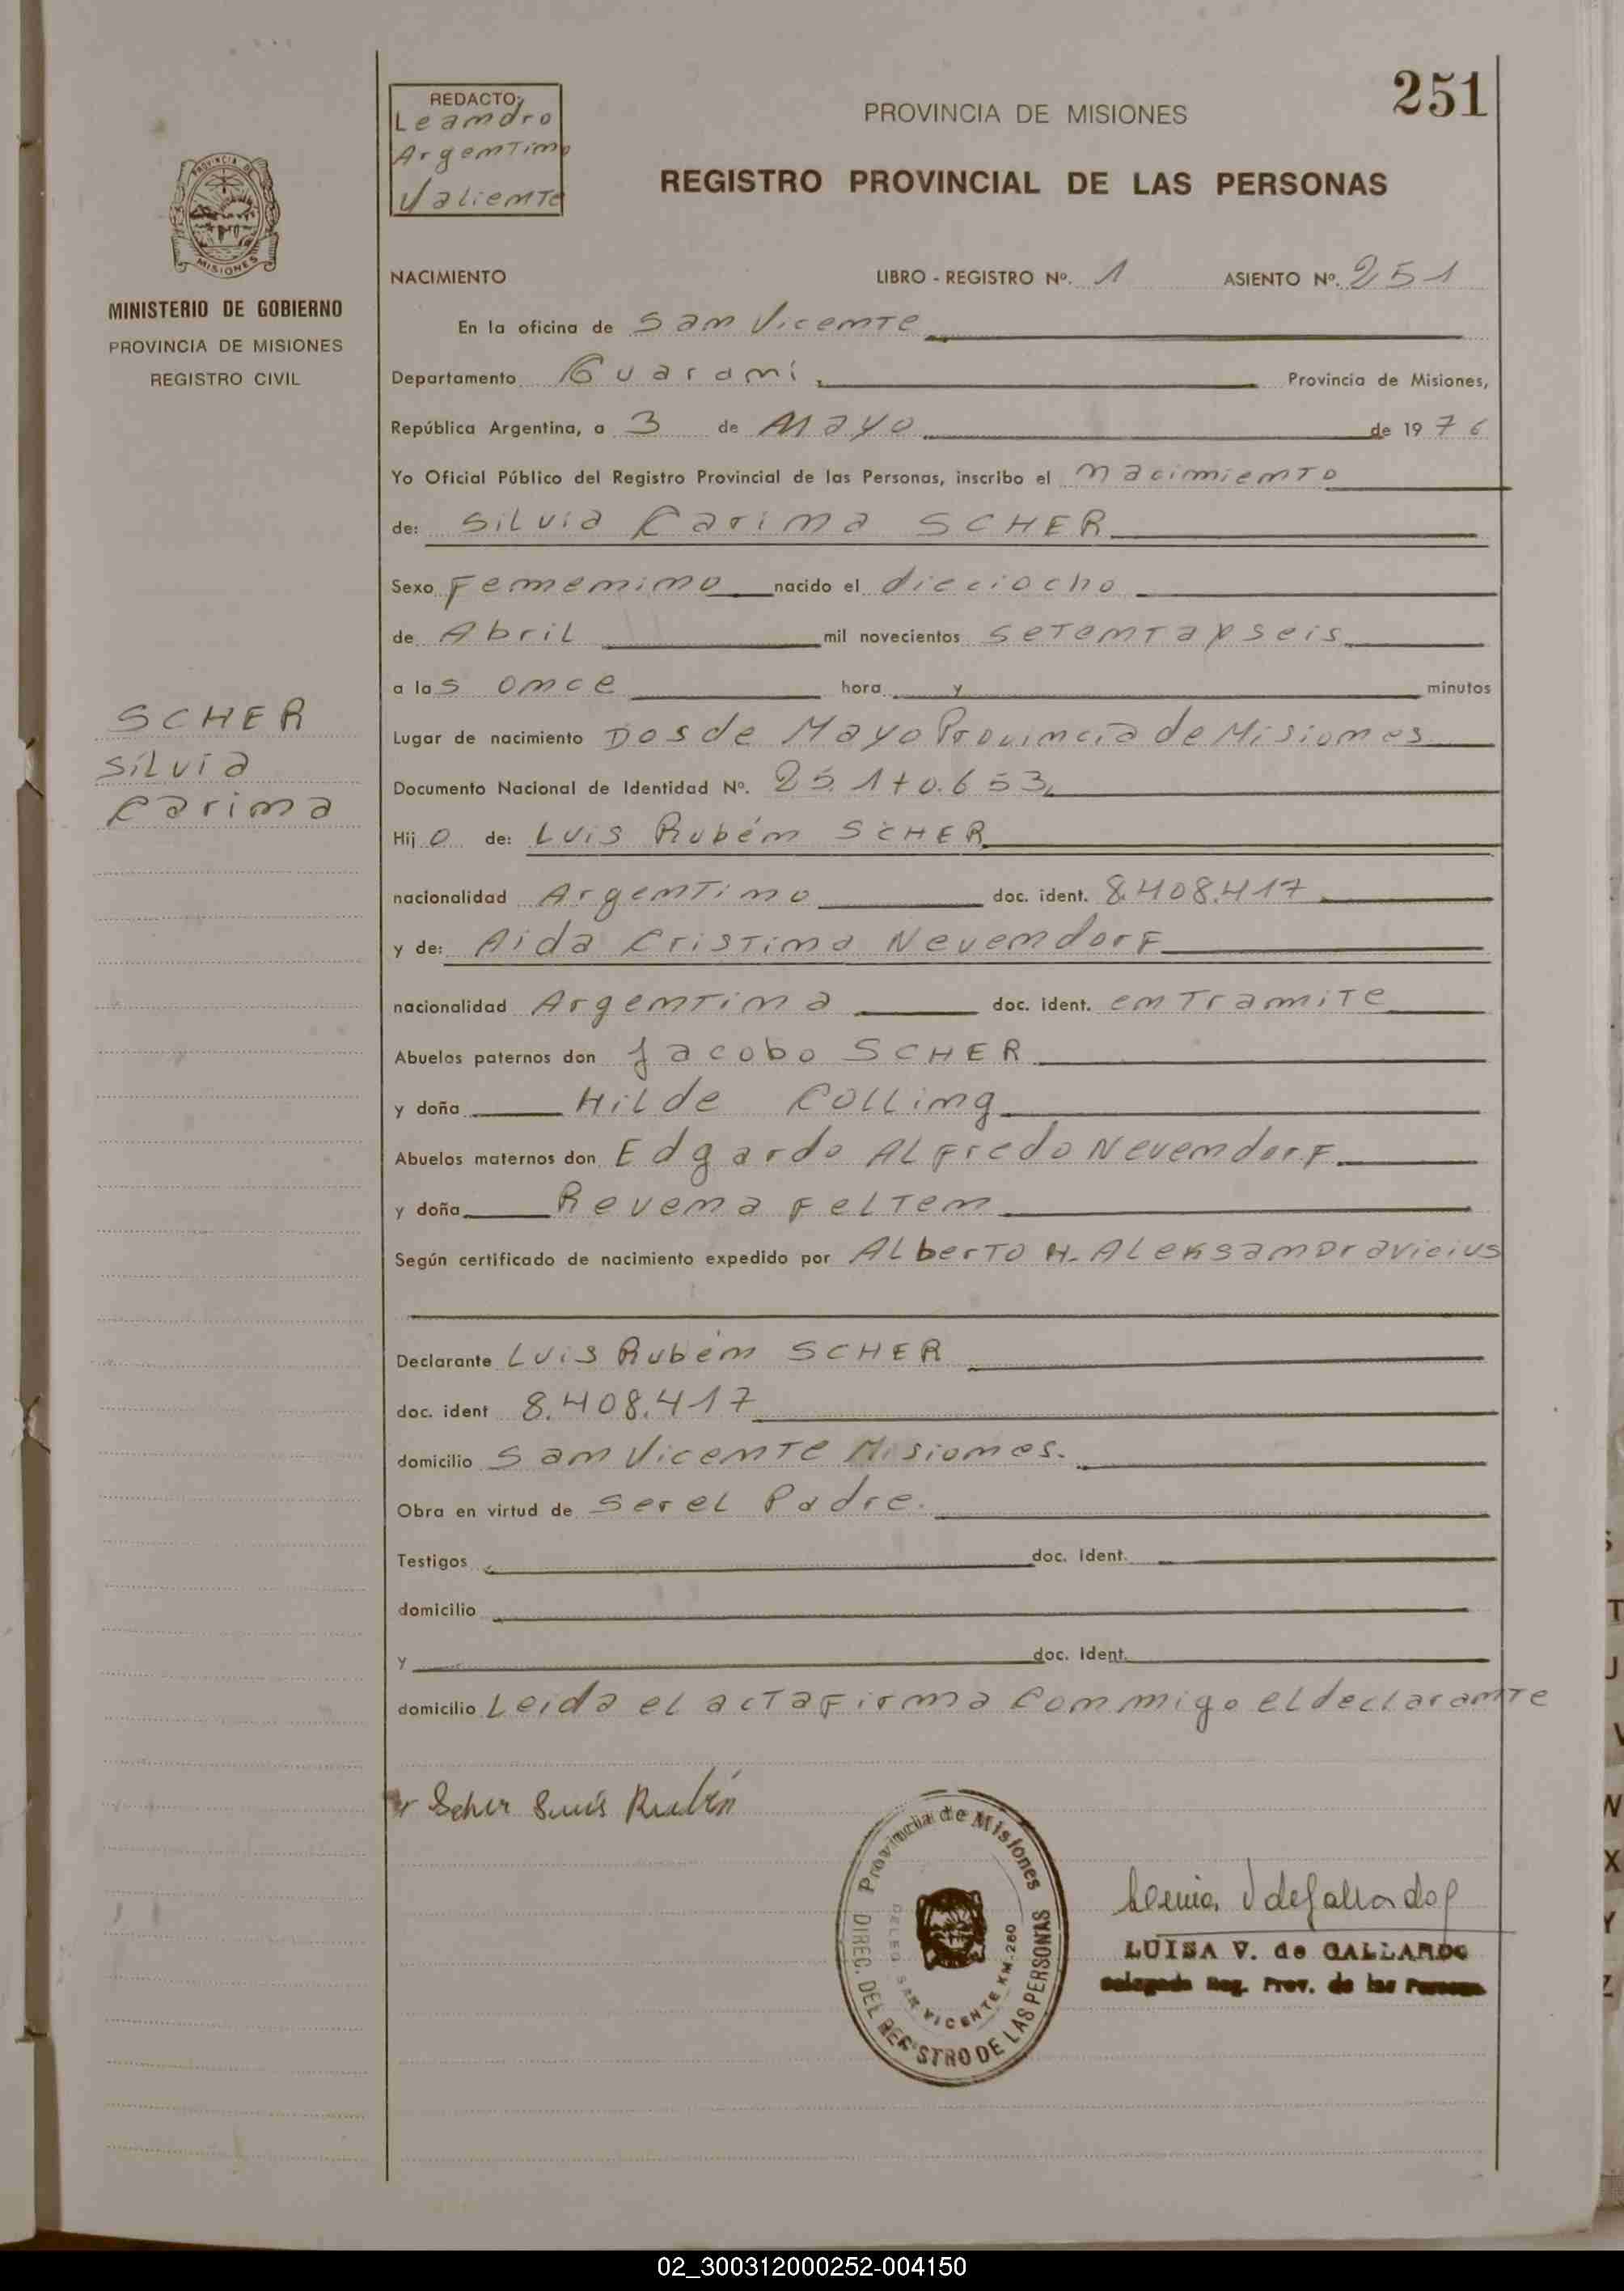 251
REDACTO:
Leandro
Argentino
Valiente
PROVINCIA DE MISIONES
REGISTRO PROVINCIAL DE LAS PERSONAS
PROVINCIA DE
MISIONES
MINISTERIO DE GOBIERNO
PROVINCIA DE MISIONES
REGISTRO CIVIL
NACIMIENTO LIBRO - REGISTRO Nº. 1 ASIENTO Nº. 251
En la oficina de San Vicente
Departamento Guarani Provincia de Misiones,
República Argentina, a 3 de Mayo de 1976
Yo Oficial Público del Registro Provincial de las Personas, inscribo el nacimiento
de: Silvia Carina SCHER
Sexo Femenino nacido el dieciocho
de Abril mil novecientos setenta y seis
a las once hora y minutos
SCHER
Silvia
Carina
Lugar de nacimiento Dos de Mayo Provincia de Misiones
Documento Nacional de Identidad Nº. 25.170.653
Hijo de: Luis Rubén SCHER
nacionalidad Argentino doc. ident. 8.408.417
y de: Aida Cristina Neuendorf
nacionalidad Argentina doc. ident. en Tramite
Abuelos paternos don Jacobo SCHER
y doña Hilde Colling
Abuelos maternos don Edgardo Alfredo Neuendorf
y doña Reuena Felten
Según certificado de nacimiento expedido por Alberto H. Aleksandravicius
Declarante Luis Rubén SCHER
doc. ident 8.408.417
domicilio San Vicente Misiones.
Obra en virtud de ser el Padre.
Testigos doc. Ident.
domicilio
y doc. Ident.
domicilio Leida el acta firma conmigo el declarante
Scher Luis Rubén
Provincia de Misiones
DIREC. DEL REGISTRO DE LAS PERSONAS
DELEG. SAN VICENTE KM. 260
LUISA V. de GALLARDO
Delegada Reg. Prov. de las Personas
02_300312000252-004150